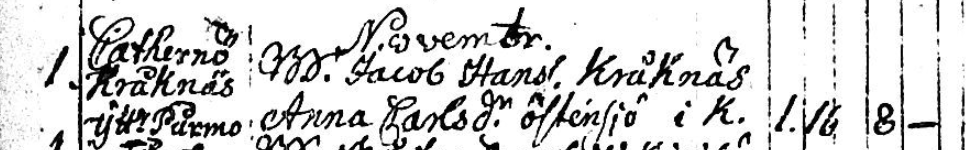 Novembr.
1. Cathernö Kråknäs ytt: Purmo
W. Jacob Hans. Kråknäs
Anna Carlsdr. östensjö i K. 1. 16 8 —